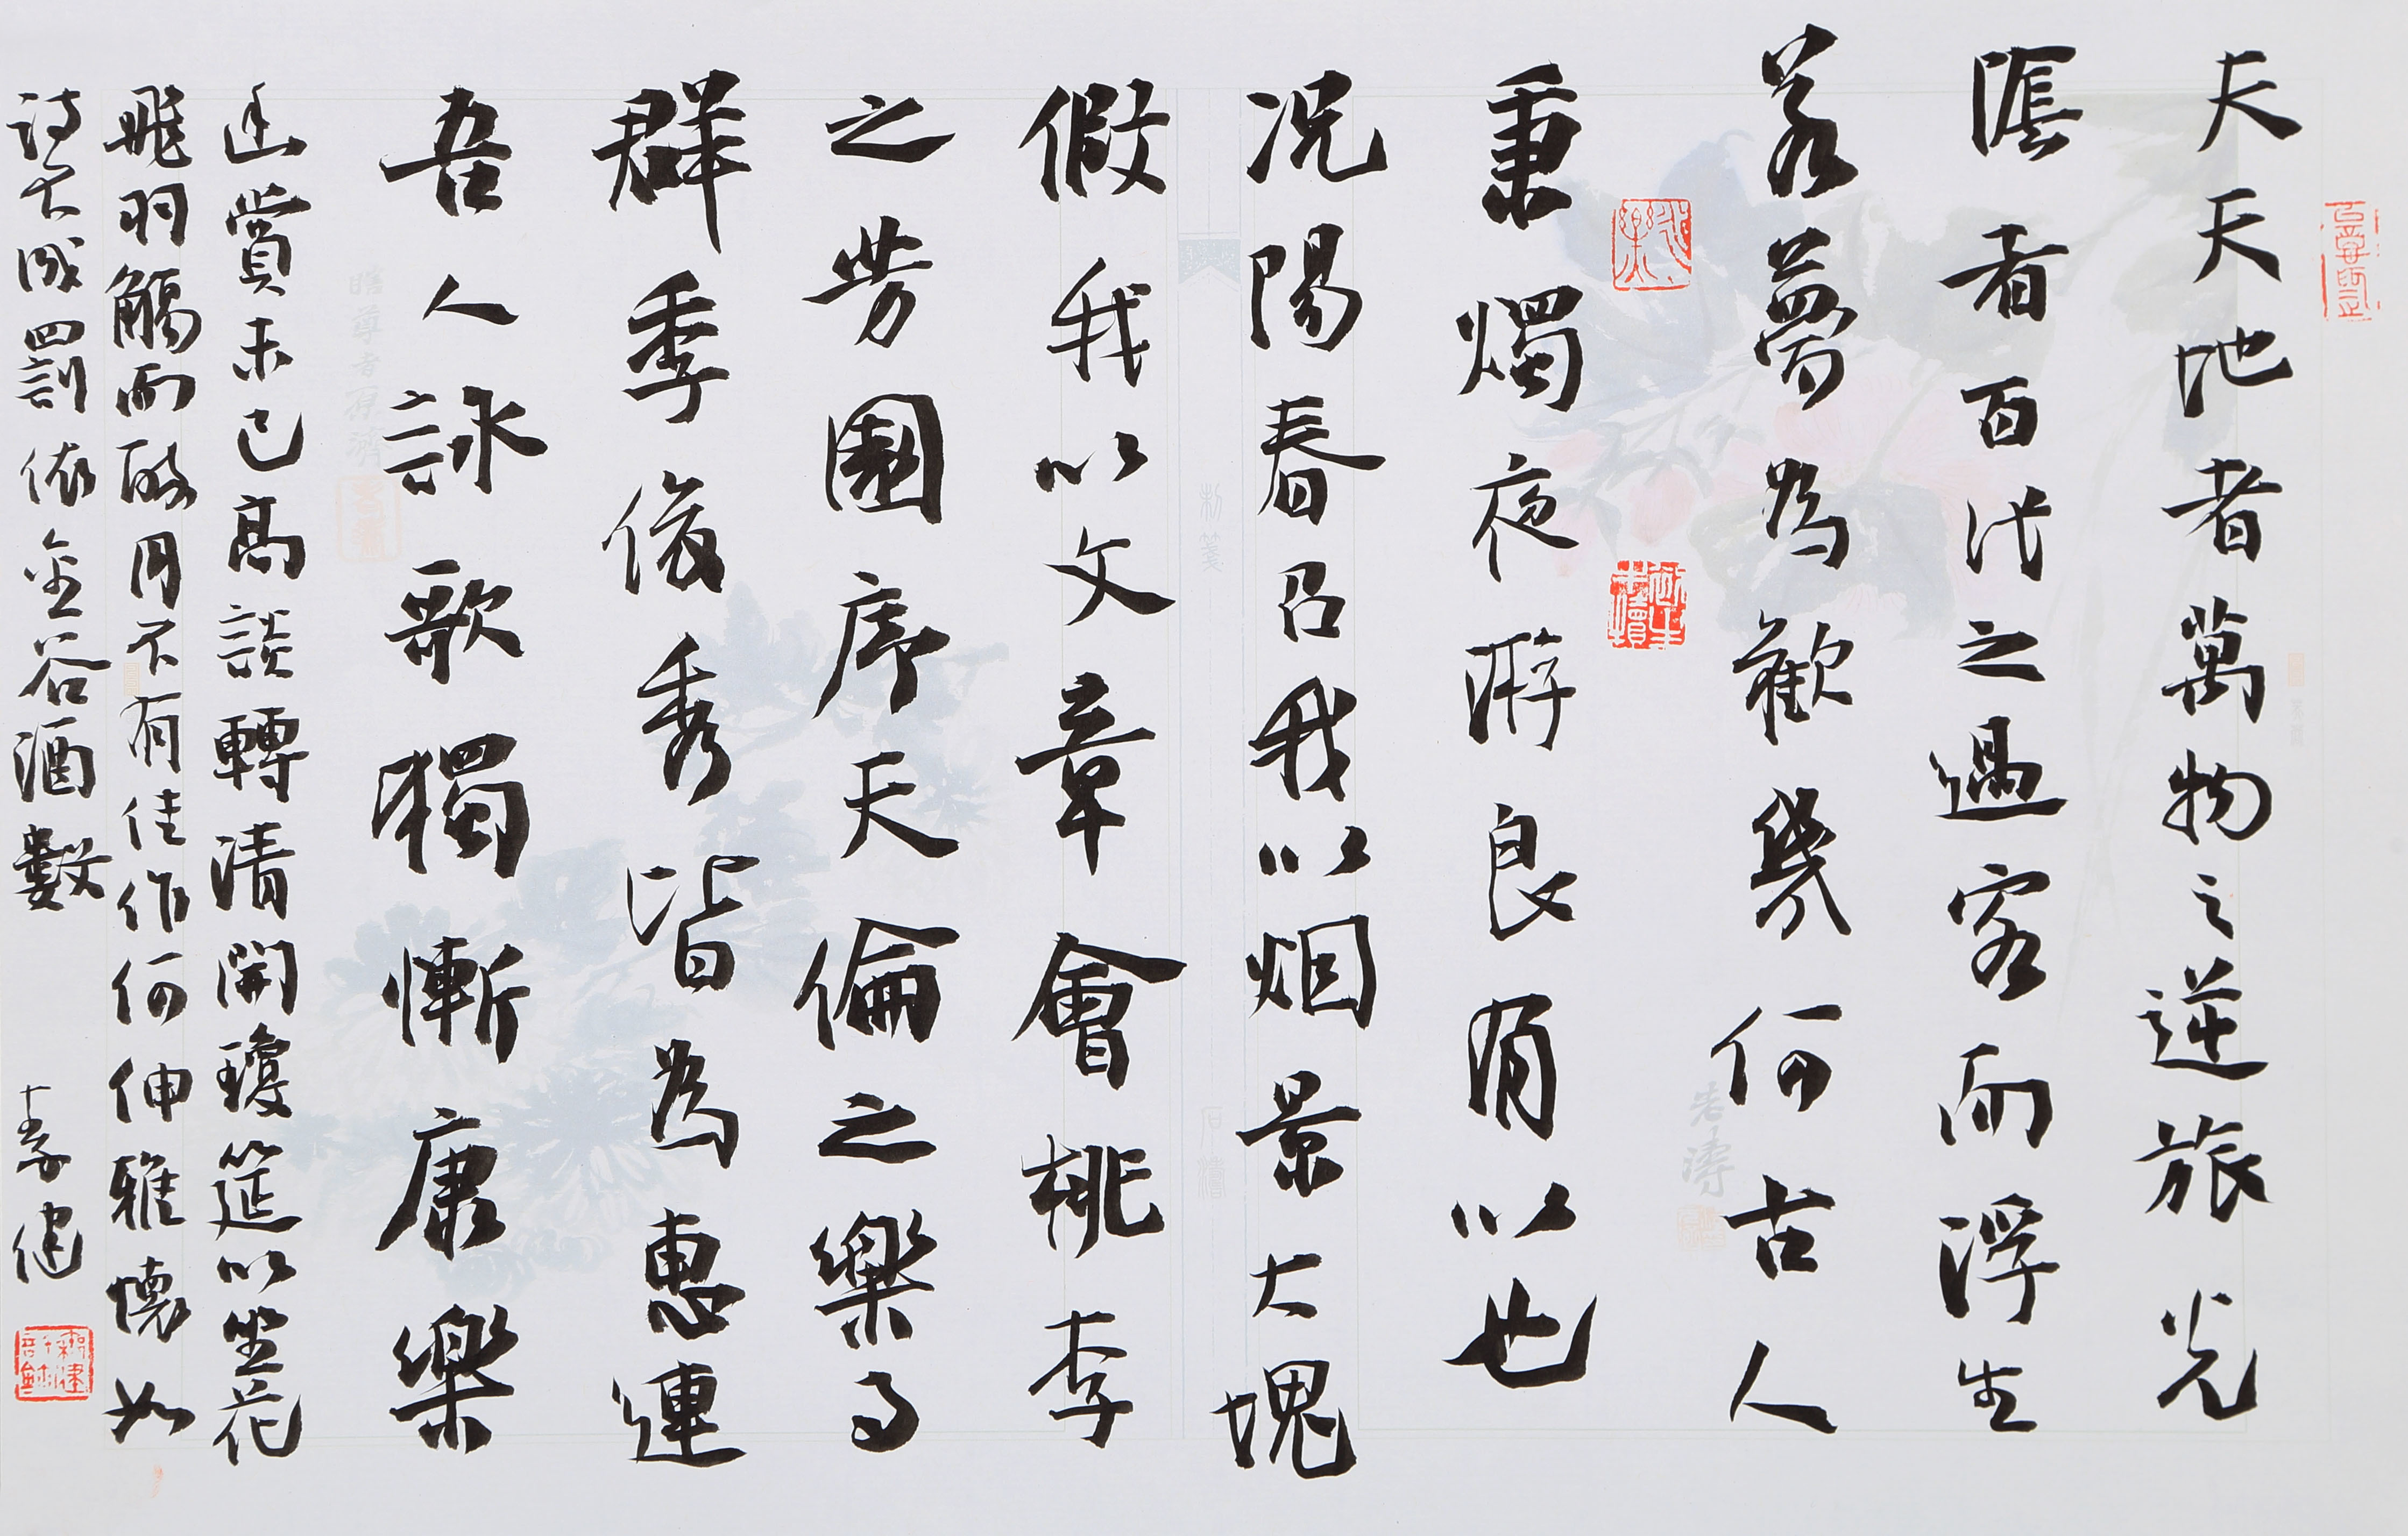 夫天地者萬物之逆旅光
陰者百代之過客而浮生
若夢為歡幾何古人
秉燭夜游良有以也
况陽春召我以烟景大塊
假我以文章會桃李
之芳園序天倫之樂事
群季俊秀皆為惠連
吾人詠歌獨慚康樂
幽賞未已高談轉清開瓊筵以坐花
飛羽觴而醉月不有佳作何伸雅懷如
詩不成罰依金谷酒數
瞎尊者原濟
石濤